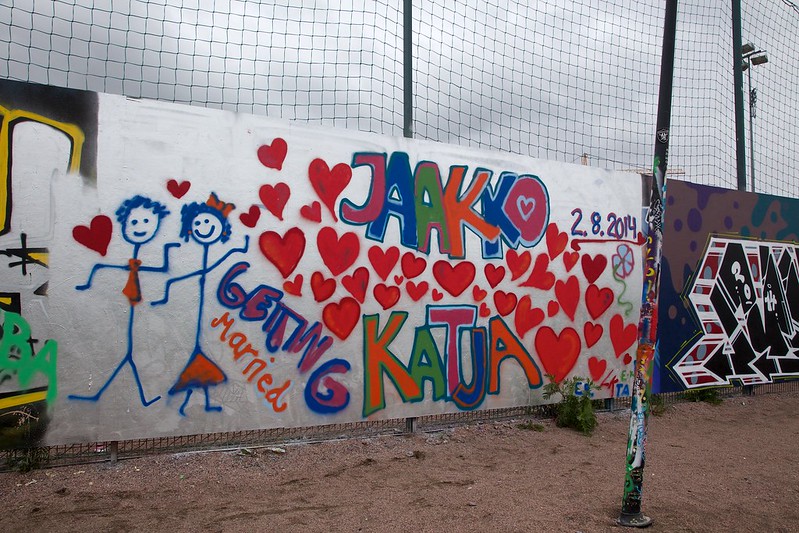 JAAKKO
2.8.2014
GETTING
married
KATJA